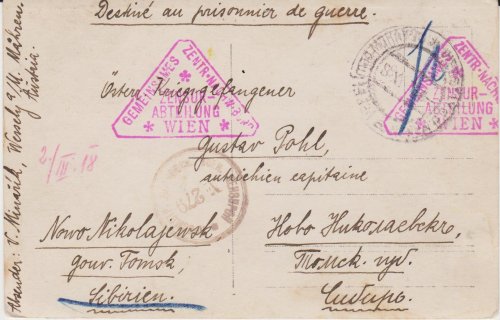 Destiné au prisonnier de guerre.
GEMEINSAMES ZENTR-NACHW-BÜRO
ZENSUR-
ABTEILUNG
WIEN
GEMEINSAMES ZENTR-NACHW
ZENSUR-
ABTEILUNG
WIEN
Österr. Kriegsgefangener
Gustav Pohl,
autrichien capitaine
2/III. 18
279
Nowo Nikolajewsk
gouv. Tomsk,
Sibirien.
Ново Николаевскъ,
Томск. губ.
Сибирь.
Absender: V. Minařík, Wessely a/M. Mähren
Austria.